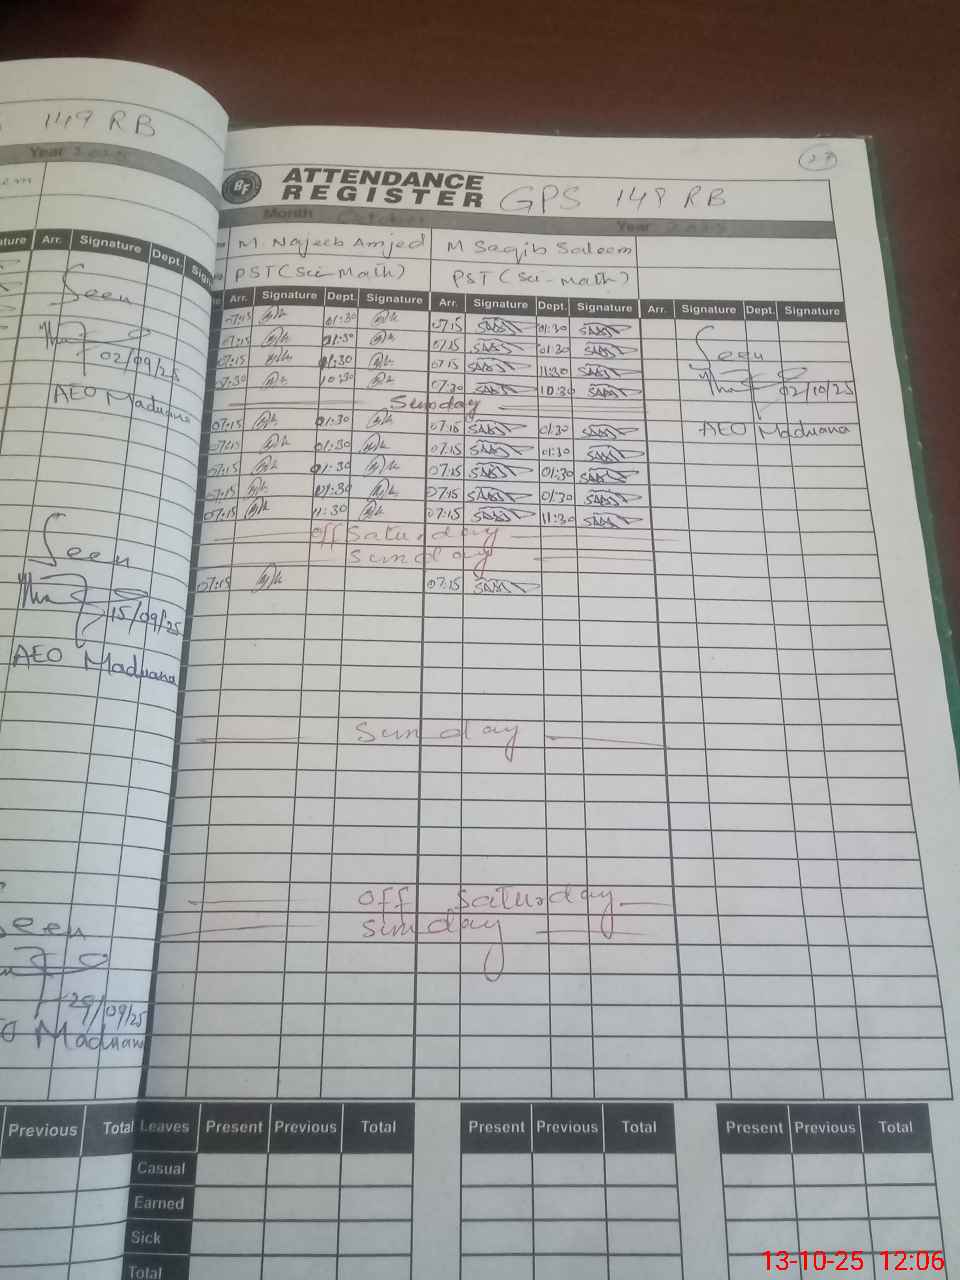 149 RB
Year 2025
ature Arr. Signature Dept. Sign
Seen
02/09/25
AEO Maduana
Seen
15/09/25
AEO Maduana
Seen
29/09/25
Maduana
Previous Total
27
BF ATTENDANCE
REGISTER GPS 149 RB
Month October Year 2025
M. Najeeb Amjed M Saqib Saleem
PST (Sci-Math) PST (Sci-Math)
Arr. Signature Dept. Signature Arr. Signature Dept. Signature Arr. Signature Dept. Signature
07:15 01:30 07:15 01:30
07:15 01:30 07:15 01:30
07:15 01:30 07:15 11:30
07:30 10:30 07:30 10:30
Seen
02/10/25
AEO Maduana
Sunday
07:15 01:30 07:15 01:30
07:15 01:30 07:15 01:30
07:15 01:30 07:15 01:30
07:15 01:30 07:15 01:30
07:15 11:30 07:15 11:30
off Saturday
Sunday
07:15 07:15
Sunday
off Saturday
Sunday
Leaves Present Previous Total Present Previous Total Present Previous Total
Casual
Earned
Sick
Total
13-10-25 12:06